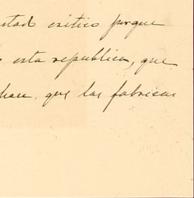 stado critico porque
esta republica, que
hace que las fabricas